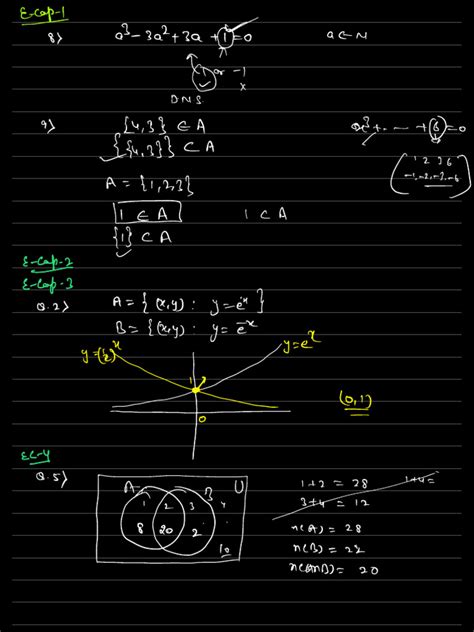 E-Cap-1
8) a³ - 3a² + 3a + 1 = 0 a ∈ N
1 or -1
x
DNS
9) {4,3} ∈ A
{{4,3}} ⊂ A
x³ + . - - + 6 = 0
1 2 3 6
-1, -2, -3, -6
A = {1,2,3}
1 ∈ A 1 ⊂ A
{1} ⊂ A
E-Cap-2
E-Cap-3
Q.2) A = {(x,y) : y = eˣ}
B = {(x,y) : y = e⁻ˣ}
y = (½)ˣ
y = eˣ
1
(0,1)
0
EC-4
Q.5)
A B U
1 2 3 4
8 20 2
10
1+2 = 28 1+4 =
3+4 = 12
n(A) = 28
n(B) = 22
n(A∩B) = 20